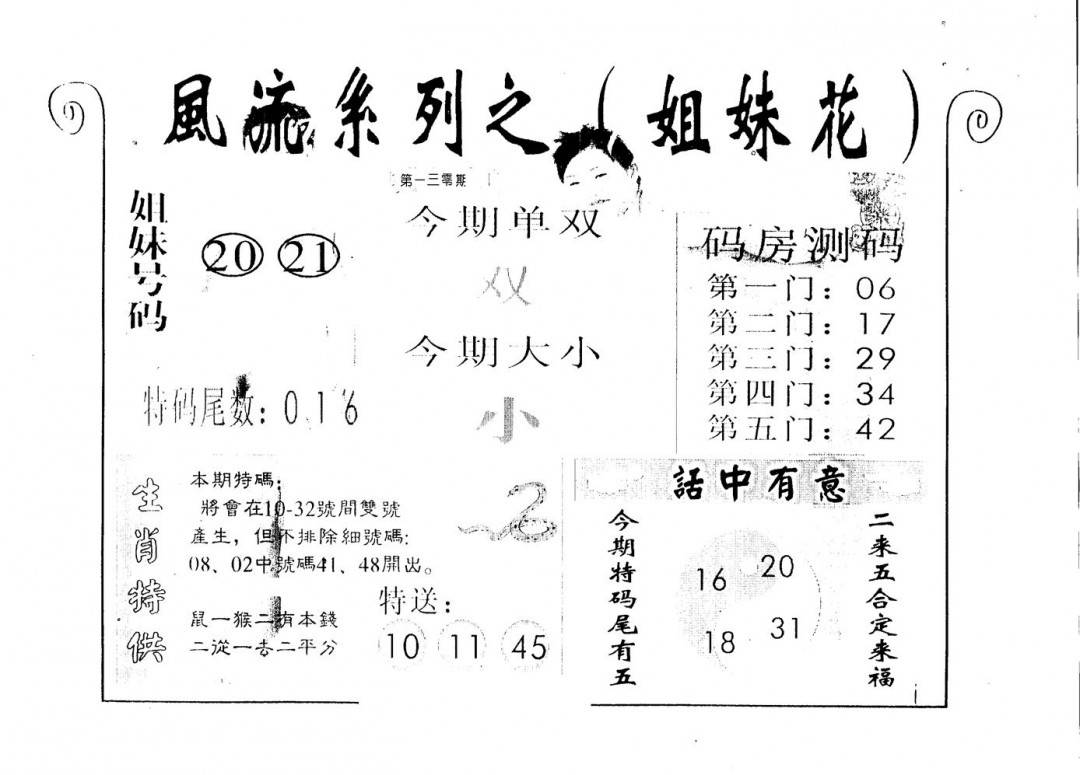 風流系列之（姐妹花）
第一三零期
姐妹号码
20 21
特码尾数：016
今期单双
双
今期大小
小
码房测码
第一门：06
第二门：17
第三门：29
第四门：34
第五门：42
生肖特供
本期特碼：
將會在10-32號間雙號
產生，但不排除細號碼:
08、02中號碼41、48開出。
鼠一猴二有本錢
二從一去二平分
特送：
10 11 45
話中有意
今期特码尾有五
16 20
18 31
二来五合定来福